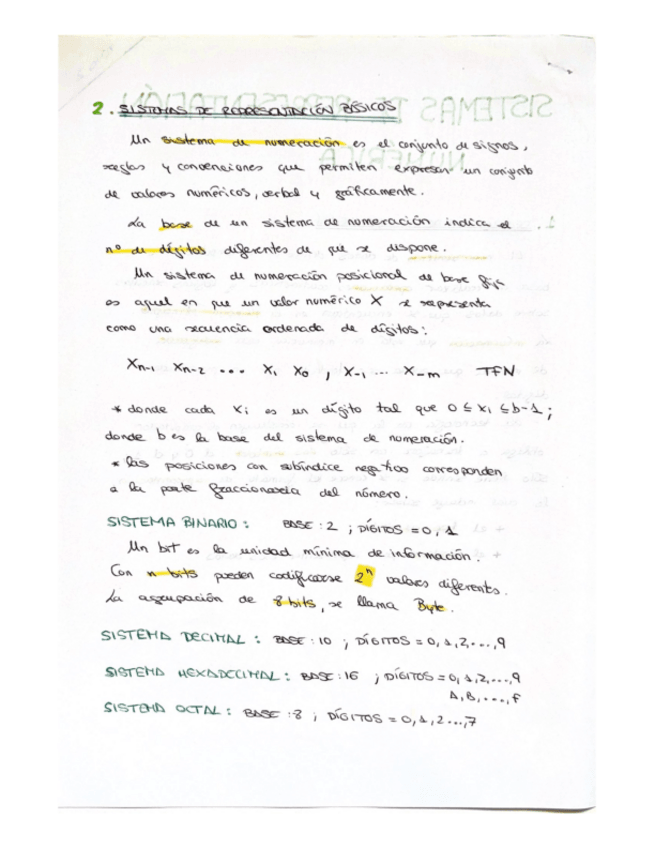 2. SISTEMAS DE REPRESENTACIÓN BÁSICOS
Un sistema de numeración es el conjunto de signos,
reglas y convenciones que permiten expresar un conjunto
de valores numéricos, verbal y gráficamente.
La base de un sistema de numeración indica el
nº de dígitos diferentes de que se dispone.
Un sistema de numeración posicional de base fija
es aquel en que un valor numérico X se representa
como una secuencia ordenada de dígitos:
Xn-1 Xn-2 ... X1 X0 , X-1 ... X-m TFN
* donde cada Xi es un dígito tal que 0 ≤ xi ≤ b-1;
donde b es la base del sistema de numeración.
* las posiciones con subíndice negativo corresponden
a la parte fraccionaria del número.
SISTEMA BINARIO: BASE: 2 ; DÍGITOS = 0, 1
Un bit es la unidad mínima de información.
Con n bits pueden codificarse 2ⁿ valores diferentes.
La agrupación de 8 bits, se llama Byte.
SISTEMA DECIMAL: BASE: 10 ; DÍGITOS = 0, 1, 2, ..., 9
SISTEMA HEXADECIMAL: BASE: 16 ; DÍGITOS = 0, 1, 2, ..., 9
A, B, ..., F
SISTEMA OCTAL: BASE: 8 ; DÍGITOS = 0, 1, 2 ..., 7